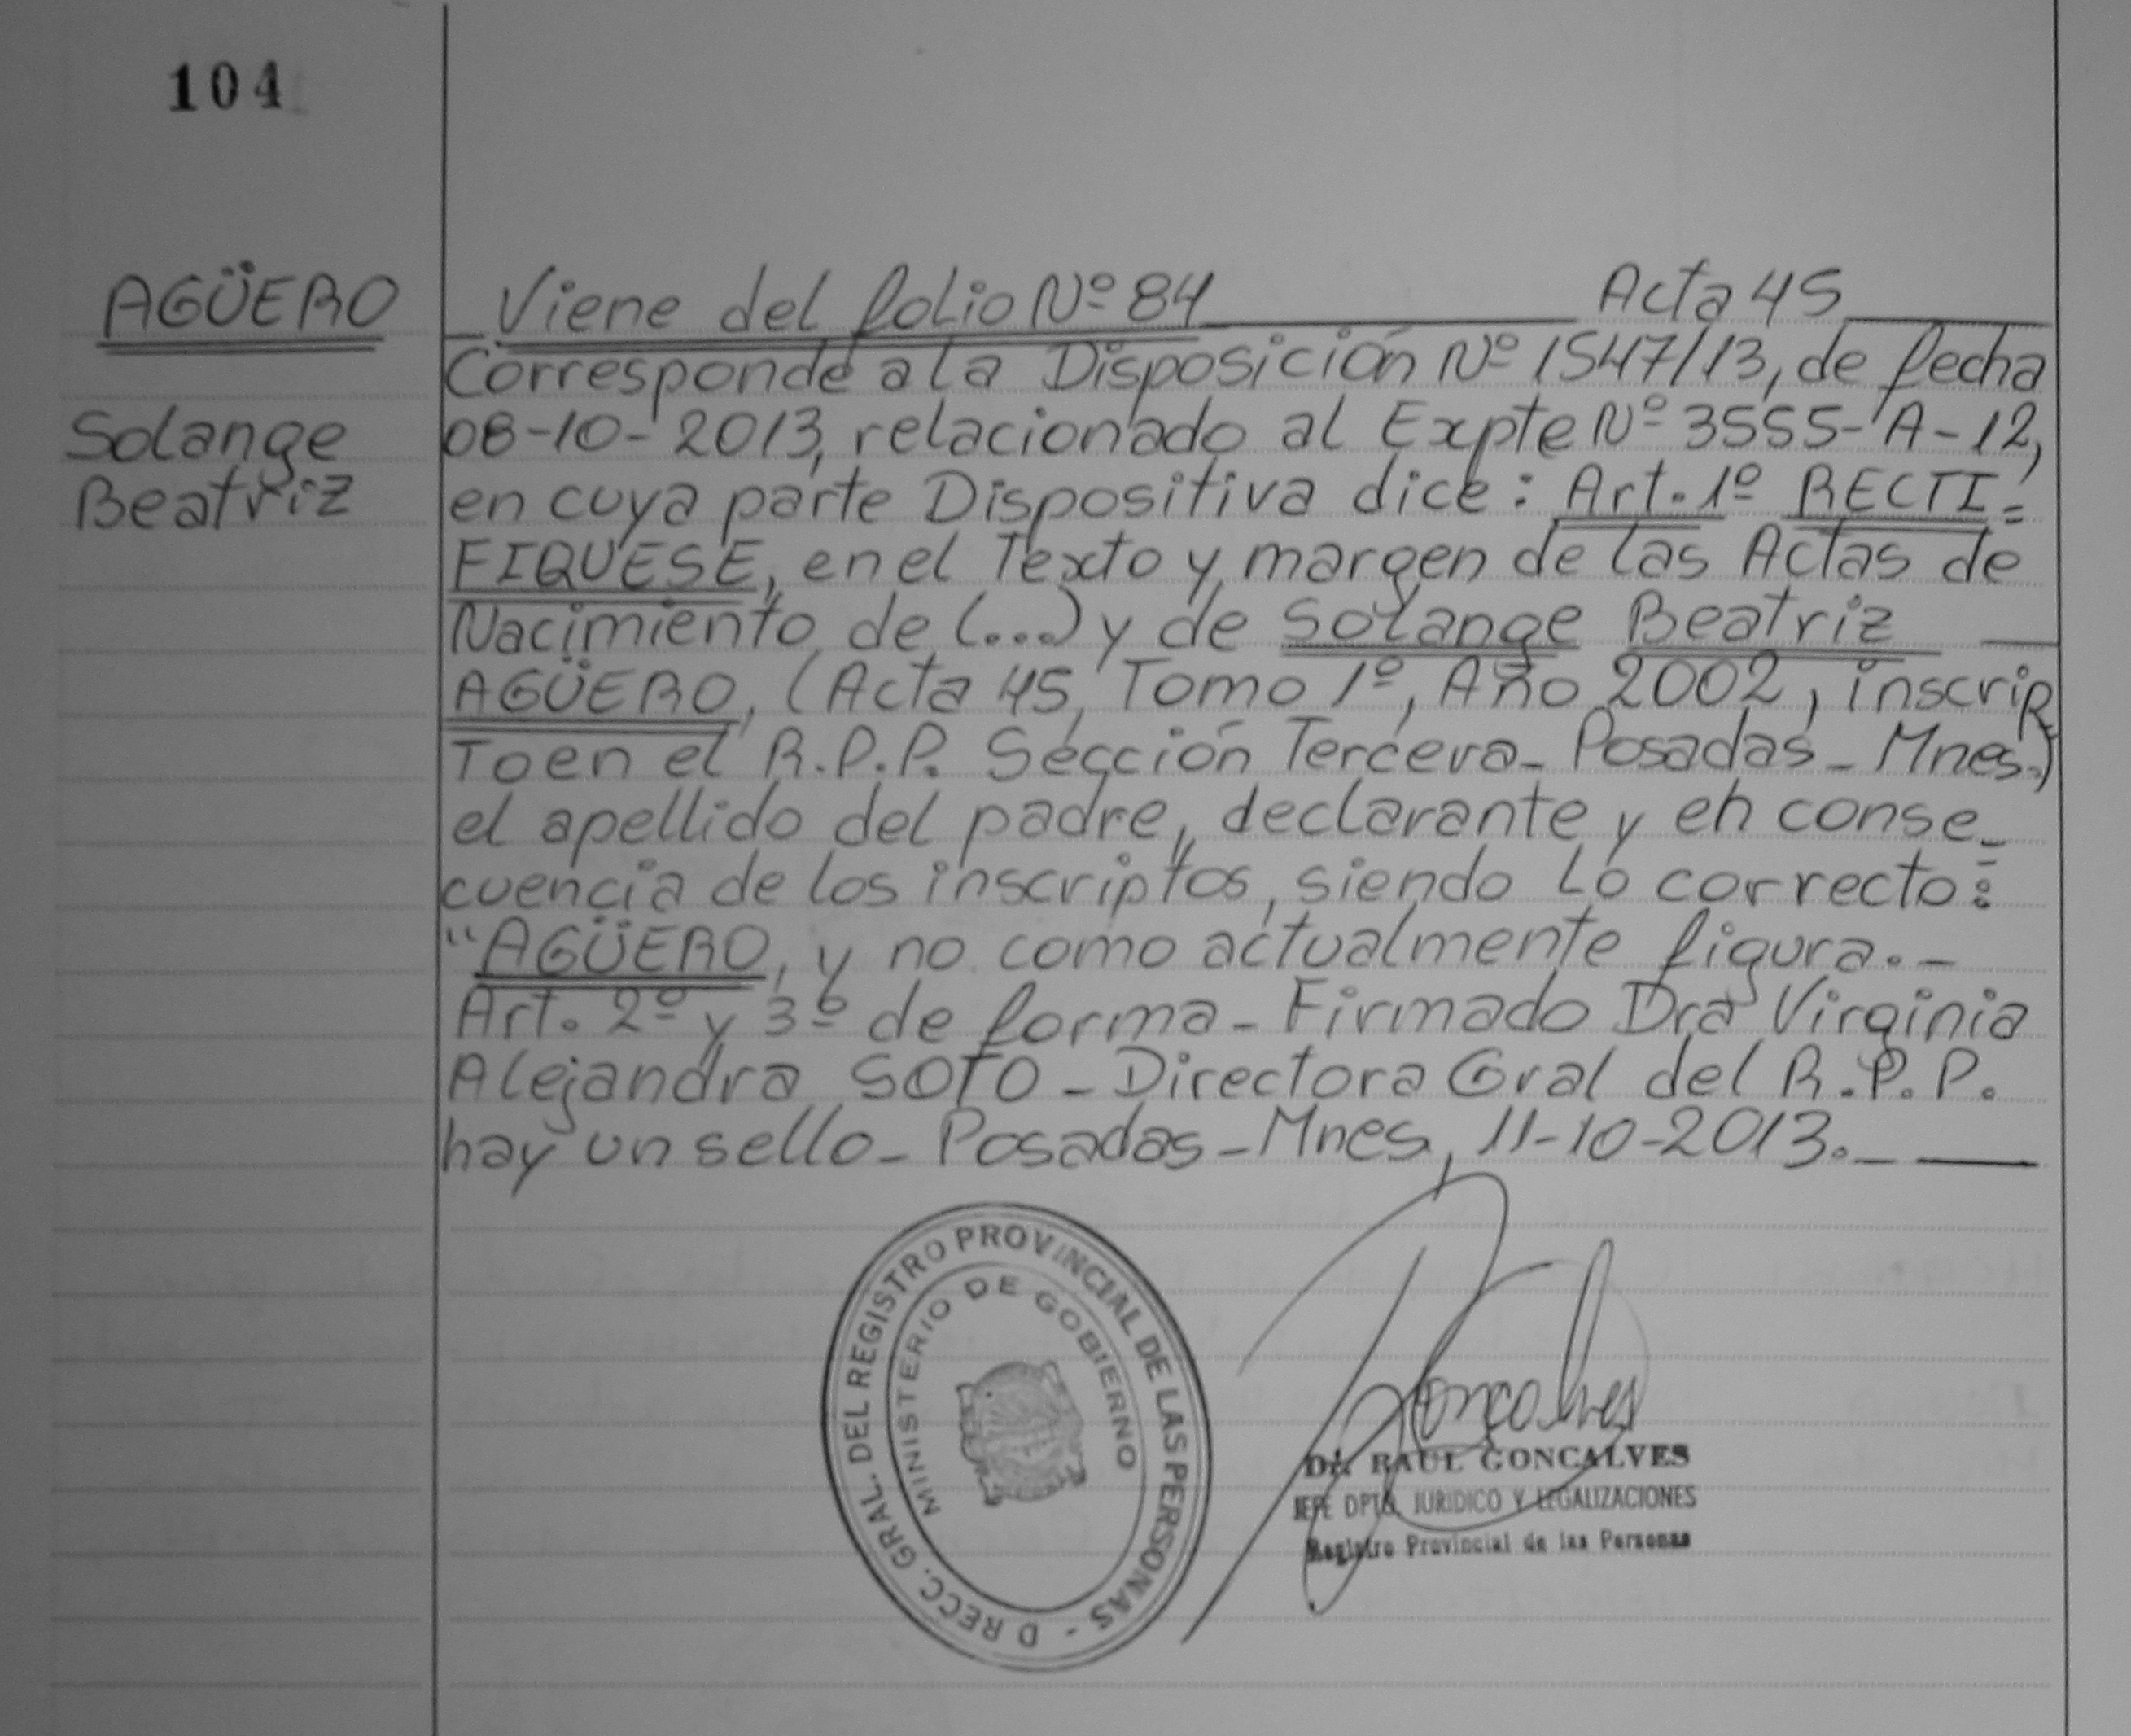 104
AGÜERO
Solange
Beatriz
Viene del folio Nº 84 Acta 45
Corresponde a la Disposición Nº 1547/13, de fecha
08-10-2013, relacionado al Expte Nº 3555-A-12,
en cuya parte Dispositiva dice: Art. 1º RECTI=
FIQUESE, en el Texto y margen de las Actas de
Nacimiento de (...) y de Solange Beatriz
AGÜERO, (Acta 45, Tomo 1º, Año 2002, inscrip
to en el R.P.P. Sección Tercera_ Posadas_ Mnes.)
el apellido del padre, declarante y en conse_
cuencia de los inscriptos, siendo lo correcto:
"AGÜERO, y no como actualmente figura.-
Art. 2º y 3º de forma_ Firmado Dra Virginia
Alejandra SOTO_ Directora Gral del R.P.P.
hay un sello_ Posadas_Mnes, 11-10-2013.
D RECC. GRAL. DEL REGISTRO PROVINCIAL DE LAS PERSONAS -
MINISTERIO DE GOBIERNO
Goncalves
Dr. RAUL GONCALVES
JEFE DPTO. JURIDICO Y LEGALIZACIONES
Registro Provincial de las Personas